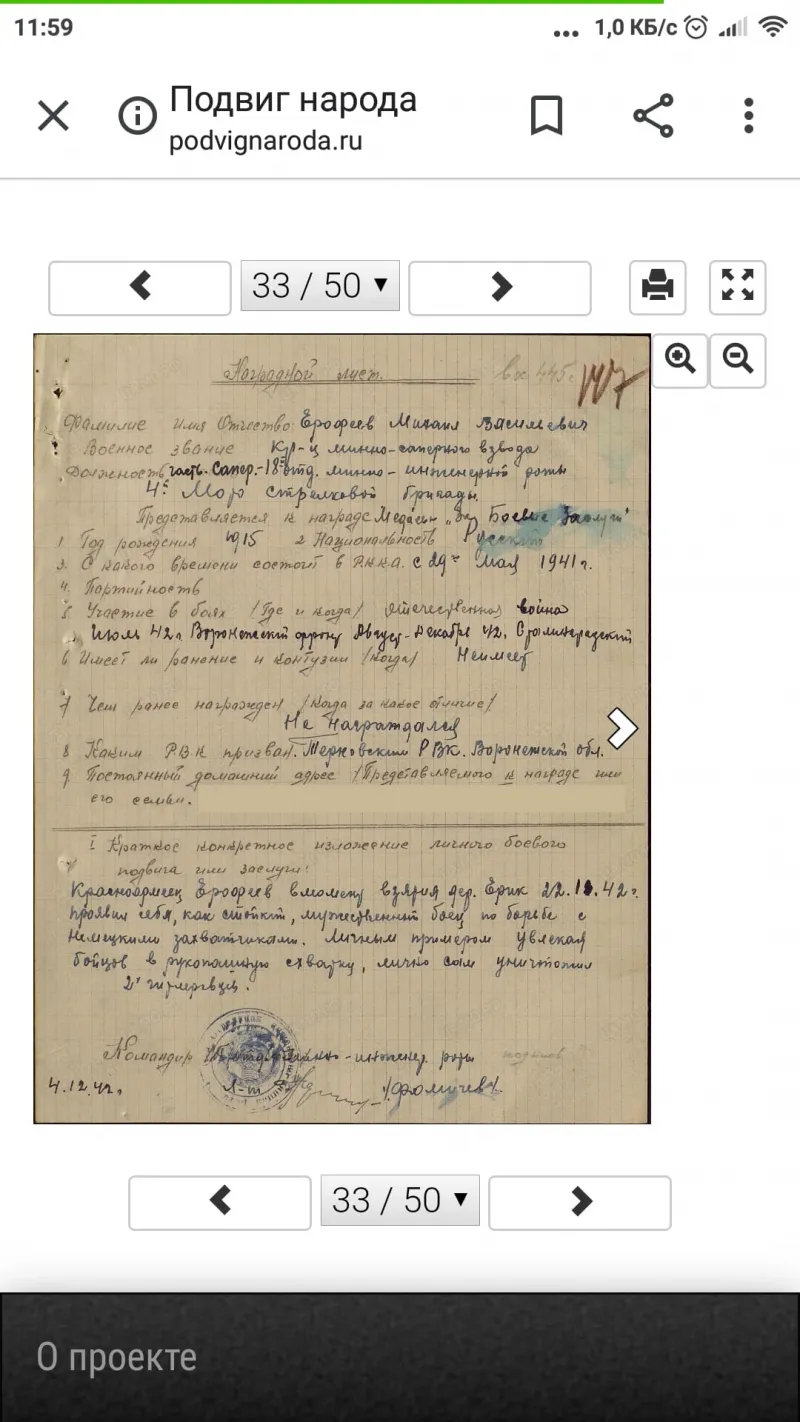 11:59
... 1,0 КБ/с
Подвиг народа
podvignaroda.ru
33 / 50
Наградной лист.
Фамилие имя Отчество: Ерофеев Михаил Васильевич
Военное звание Кр-ц минно-саперного взвода
Должность часть. Сапер.-18 отд. минно-инженерной роты
4й Мото стрелковой бригады.
Представляется к награде Медалью „За Боевые Заслуги"
1. Год рождения 1915 2 Национальность Русский
3. С какого времени состоит в Р.К.К.А. с 29го мая 1941 г.
4. Партийность
5. Участие в боях /Где и когда/ Отечественная война
Июль 42 г. Воронежский фронт Август-Декабрь 42, Сталинградский
6 Имеет ли ранение и контузии /когда/ Неимеет
7 Чем ранее награжден /Когда за какое отличие/
Не награждался
8 Каким Р.В.К призван. Терновским РВК. Воронежской обл.
9 Постоянный домашний адрес /Представляемого к награде или
его семьи.
I Краткое конкретное изложение личного боевого
подвига или заслуги:
Красноармеец Ерофеев вмомент взятия дер. Ерик 22.11.42 г.
проявил себя, как стойкий, мужественный боец по борьбе с
немецкими захватчиками. Личным примером увлекая
бойцов в рукопашную схватку, лично сам уничтожил
2х гитлеровцев.
Командир инженер. роты
4.12.42 г. Л-т /Фомичев/
33 / 50
О проекте